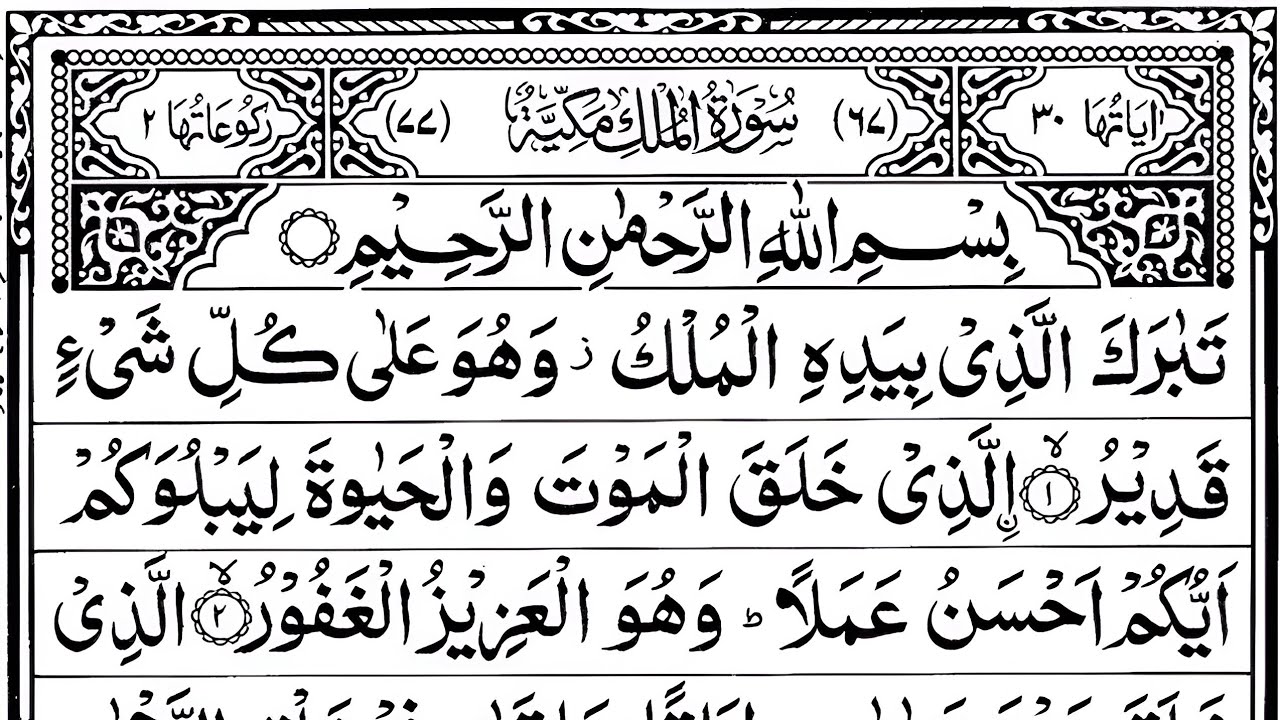 اٰيَاتُهَا ٣٠ (٦٧) سُوْرَةُ الْمُلْكِ مَكِّيَّةٌ (٧٧) رُكُوْعَاتُهَا ٢
بِسْمِ اللّٰهِ الرَّحْمٰنِ الرَّحِيْمِ
تَبٰرَكَ الَّذِىْ بِيَدِهِ الْمُلْكُ ز وَهُوَ عَلٰى كُلِّ شَىْءٍ
قَدِيْرُ ۙ ﴿١﴾ نِ الَّذِىْ خَلَقَ الْمَوْتَ وَالْحَيٰوةَ لِيَبْلُوَكُمْ
اَيُّكُمْ اَحْسَنُ عَمَلًا ؕ وَهُوَ الْعَزِيْزُ الْغَفُوْرُ ۙ ﴿٢﴾ الَّذِىْ